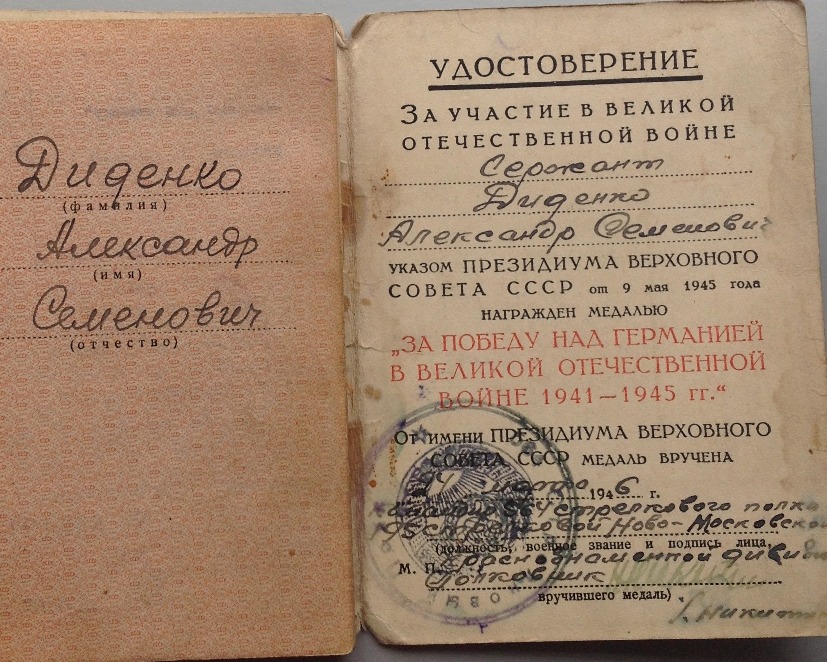 Диденко
(фамилия)
Александр
(имя)
Семенович
(отчество)
УДОСТОВЕРЕНИЕ
ЗА УЧАСТИЕ В ВЕЛИКОЙ
ОТЕЧЕСТВЕННОЙ ВОЙНЕ
Сержант
Диденко
Александр Семенович
УКАЗОМ ПРЕЗИДИУМА ВЕРХОВНОГО
СОВЕТА СССР от 9 мая 1945 года
НАГРАЖДЕН МЕДАЛЬЮ
„ЗА ПОБЕДУ НАД ГЕРМАНИЕЙ
В ВЕЛИКОЙ ОТЕЧЕСТВЕННОЙ
ВОЙНЕ 1941—1945 гг.“
ОТ ИМЕНИ ПРЕЗИДИУМА ВЕРХОВНОГО
СОВЕТА СССР МЕДАЛЬ ВРУЧЕНА
1946 г.
564 стрелкового полка
195 стрелковой Ново-Московской
(должность, военное звание и подпись лица,
М. П. Краснознаменной
Полковник
вручившего медаль)